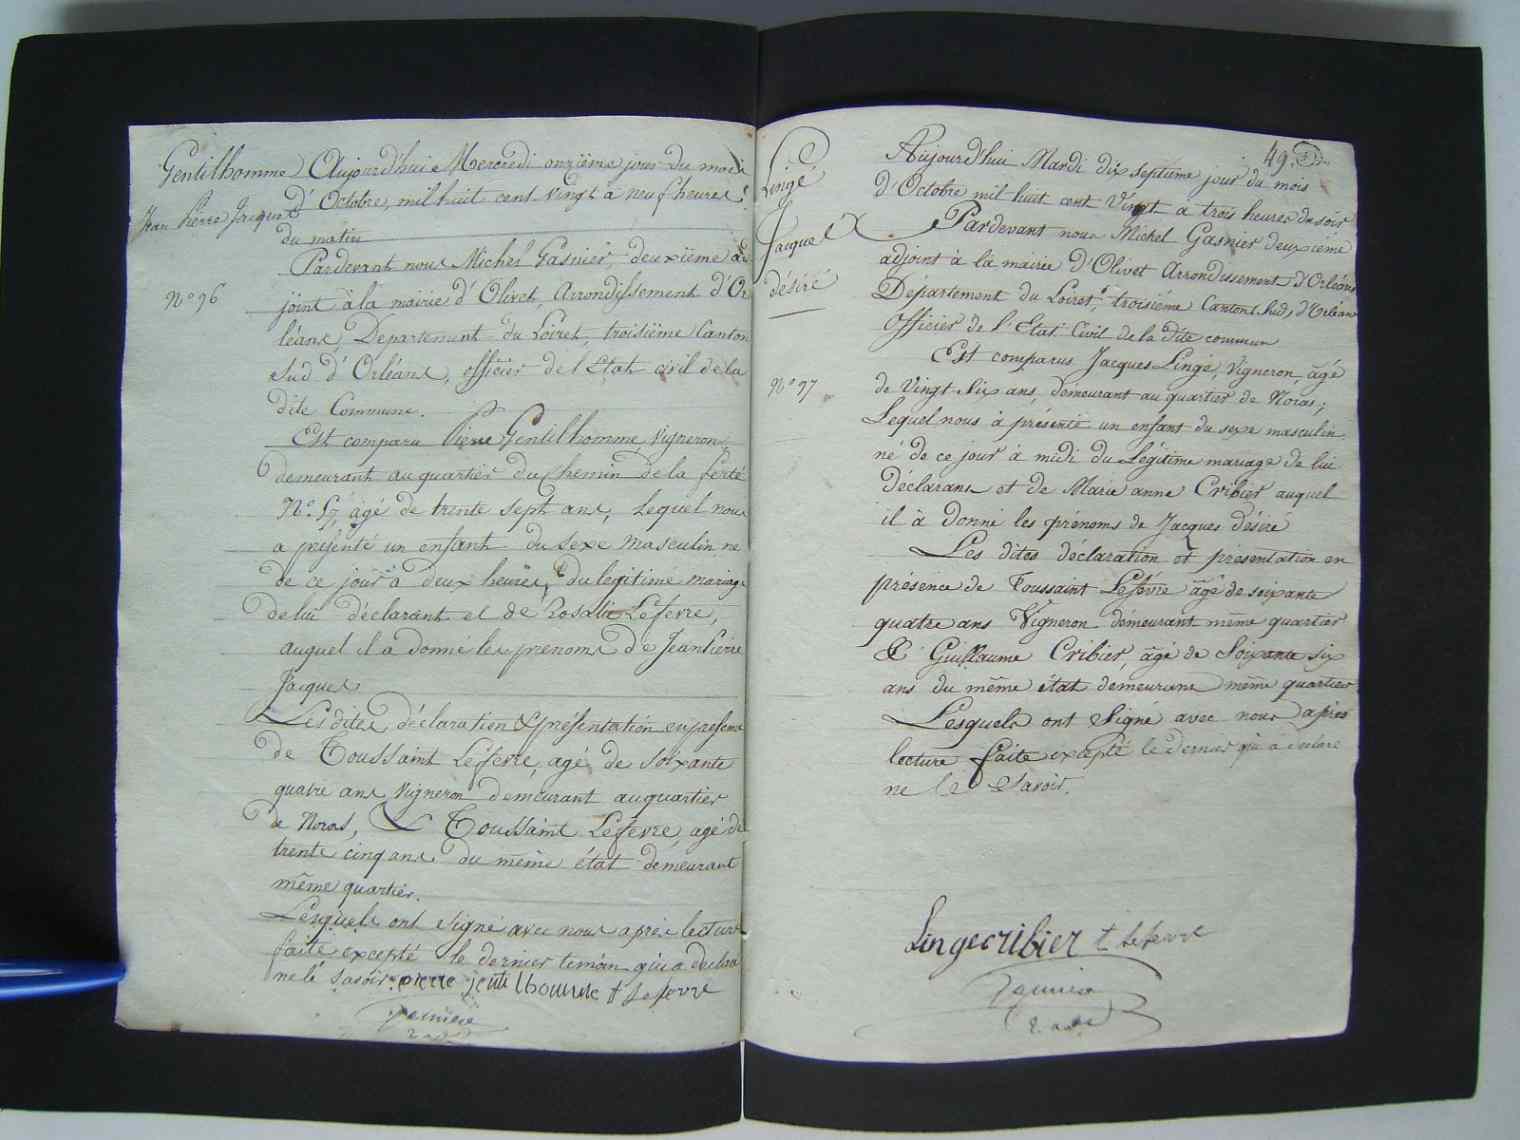 Gentilhomme
Jean Pierre Jacques
N° 96
Aujourd'hui Mercredi onzième jour du mois
d'Octobre, mil huit cent vingt à neuf heures
du matin
Pardevant nous Michel Gasnier, deuxième ad
joint à la mairie d'Olivet, Arrondissement d'Or
léans, Departement du Loiret, troisième Canton
Sud d'Orléans, officier de l'Etat civil de la
dite Commune.
Est comparu Pierre Gentilhomme vigneron,
demeurant au quartier du Chemin de la ferté
N° 57, âgé de trente sept ans, Lequel nous
a présenté un enfant du Sexe masculin né
de ce jour à deux heures, du légitime mariage
de lui déclarant et de Rosalie Lefevre,
auquel il a donné les prénoms de Jean Pierre
Jacques
Les dites déclaration & présentation en présence
de Toussaint Lefevre, agé de soixante
quatre ans vigneron demeurant au quartier
de Noras, & Toussaint Lefevre, agé de
trente cinq ans du même état demeurant
même quartier.
Lesquels ont signé avec nous après lecture
faite excepté le dernier témoin qui a déclaré
ne le savoir. pierre jentilhomme t Lefevre
49.
Lingé
Jacques
désiré
N° 97
Aujourd'hui Mardi dix septième jour du mois
d'Octobre mil huit cent Vingt a trois heures du soir
Pardevant nous Michel Gasnier deuxième
adjoint à la mairie d'Olivet Arrondissement d'Orléans
Département du Loiret, troisième Canton Sud, d'Orléans
Officier de l'Etat Civil de la dite commun
Est comparus Jacques Lingé, Vigneron, âgé
de Vingt Six ans, demeurant au quartier de Noras;
Lequel nous à présenté un enfant du sexe masculin
né de ce jour à midi du Légitime mariage de lui
déclarans et de Marie anne Cribier auquel
il à donné les prénoms de Jacques désiré
Les dites déclaration et présentation en
présence de Toussaint Lefevre âgé de soixante
quatre ans Vigneron demeurant même quartier
& Guillaume Cribier, âgé de Soixante six
ans du même état demeurans même quartier
Lesquels ont Signé avec nous après
lecture faite excepté le dernier qui a déclaré
ne le Savoir.
Linge cribier t Lefevre